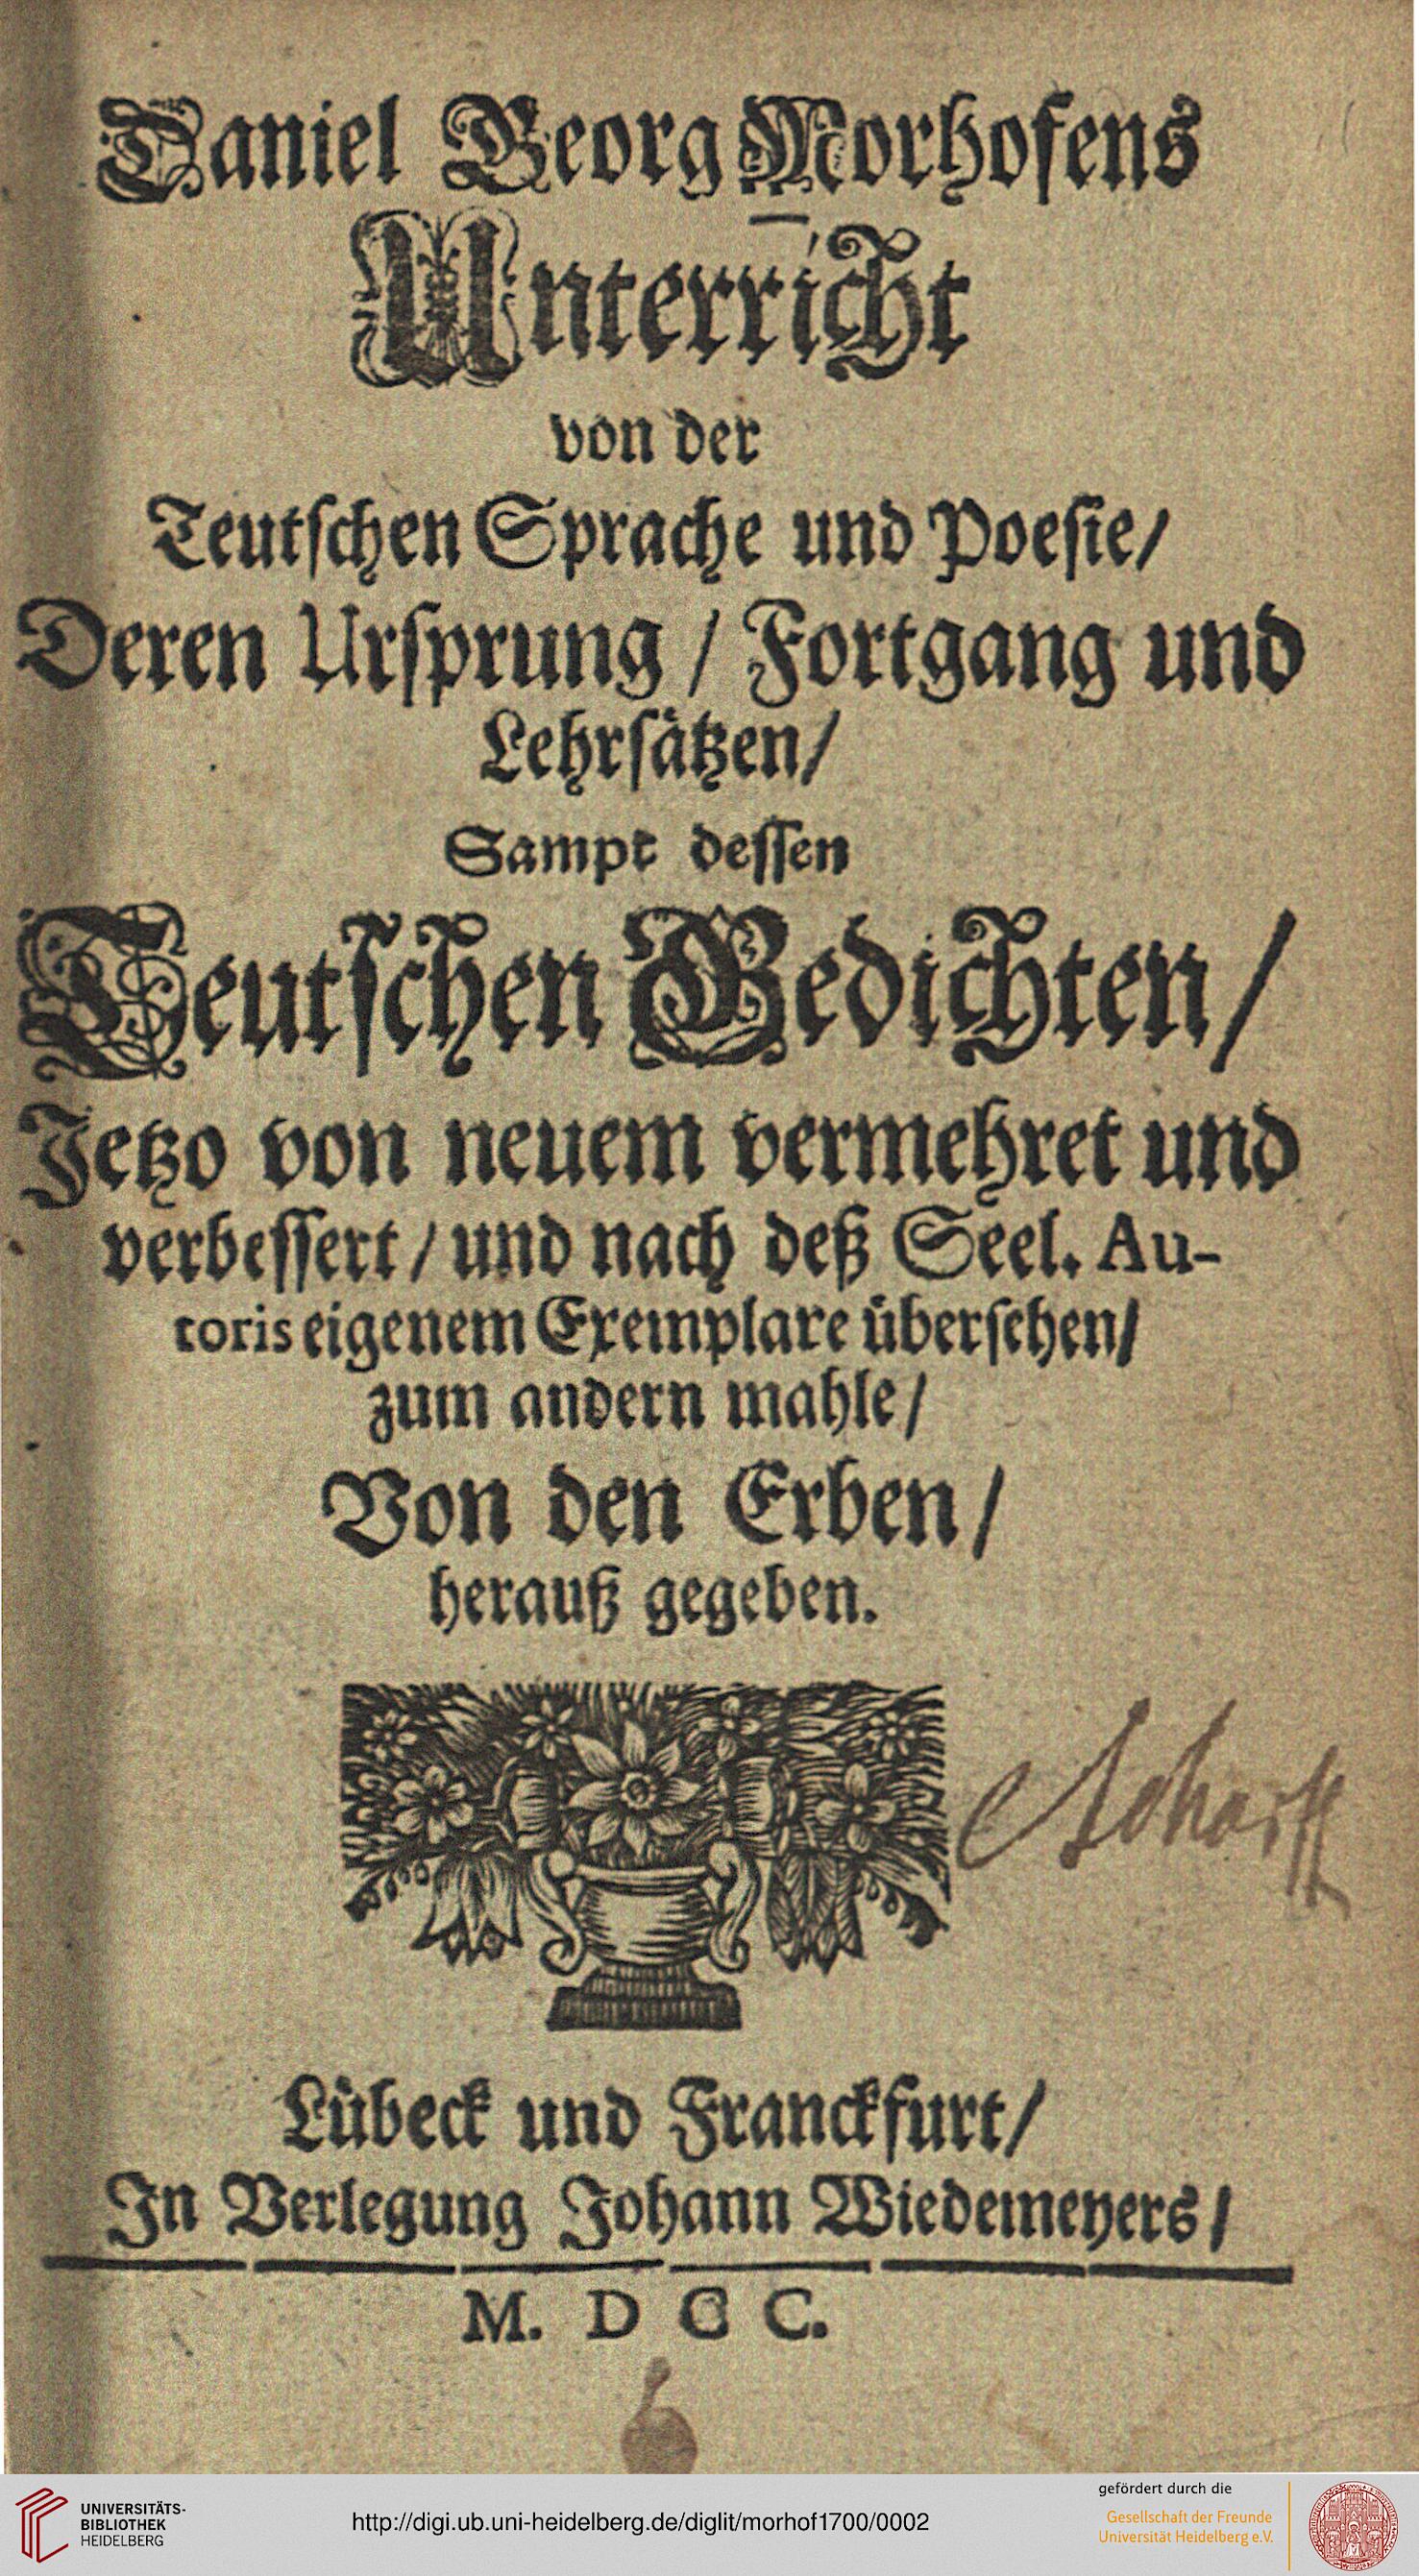 Daniel Georg Morhofens
Unterricht
von der
Teutschen Sprache und Poesie/
Deren Ursprung / Fortgang und
Lehrsätzen/
Sampt dessen
Teutschen Gedichten/
Jetzo von neuem vermehret und
verbessert / und nach deß Seel. Au-
toris eigenem Exemplare übersehen/
zum andern mahle /
Von den Erben /
herauß gegeben.
Lübeck und Franckfurt/
In Verlegung Johann Wiedemeyers /
M. D C C.
UNIVERSITÄTS-
BIBLIOTHEK
HEIDELBERG
http://digi.ub.uni-heidelberg.de/diglit/morhof1700/0002
gefördert durch die
Gesellschaft der Freunde
Universität Heidelberg e.V.